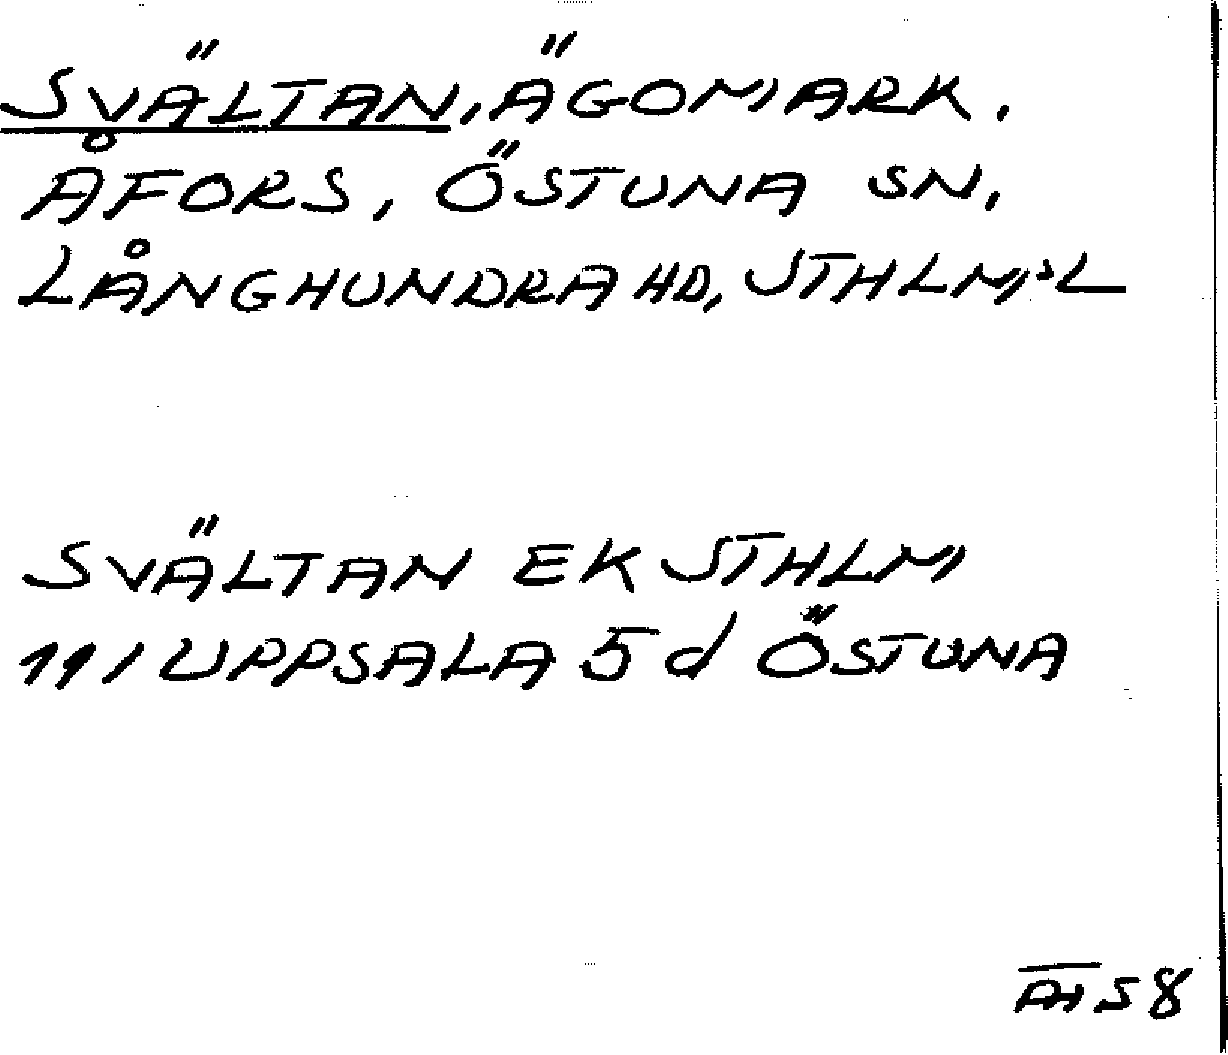 SVÄLTAN, ÄGOMARK.
ÅFORS, ÖSTUNA SN,
LÅNGHUNDRA HD, STHLM,S L
SVÄLTAN EK STHLM
11 I UPPSALA 5 d ÖSTUNA
58